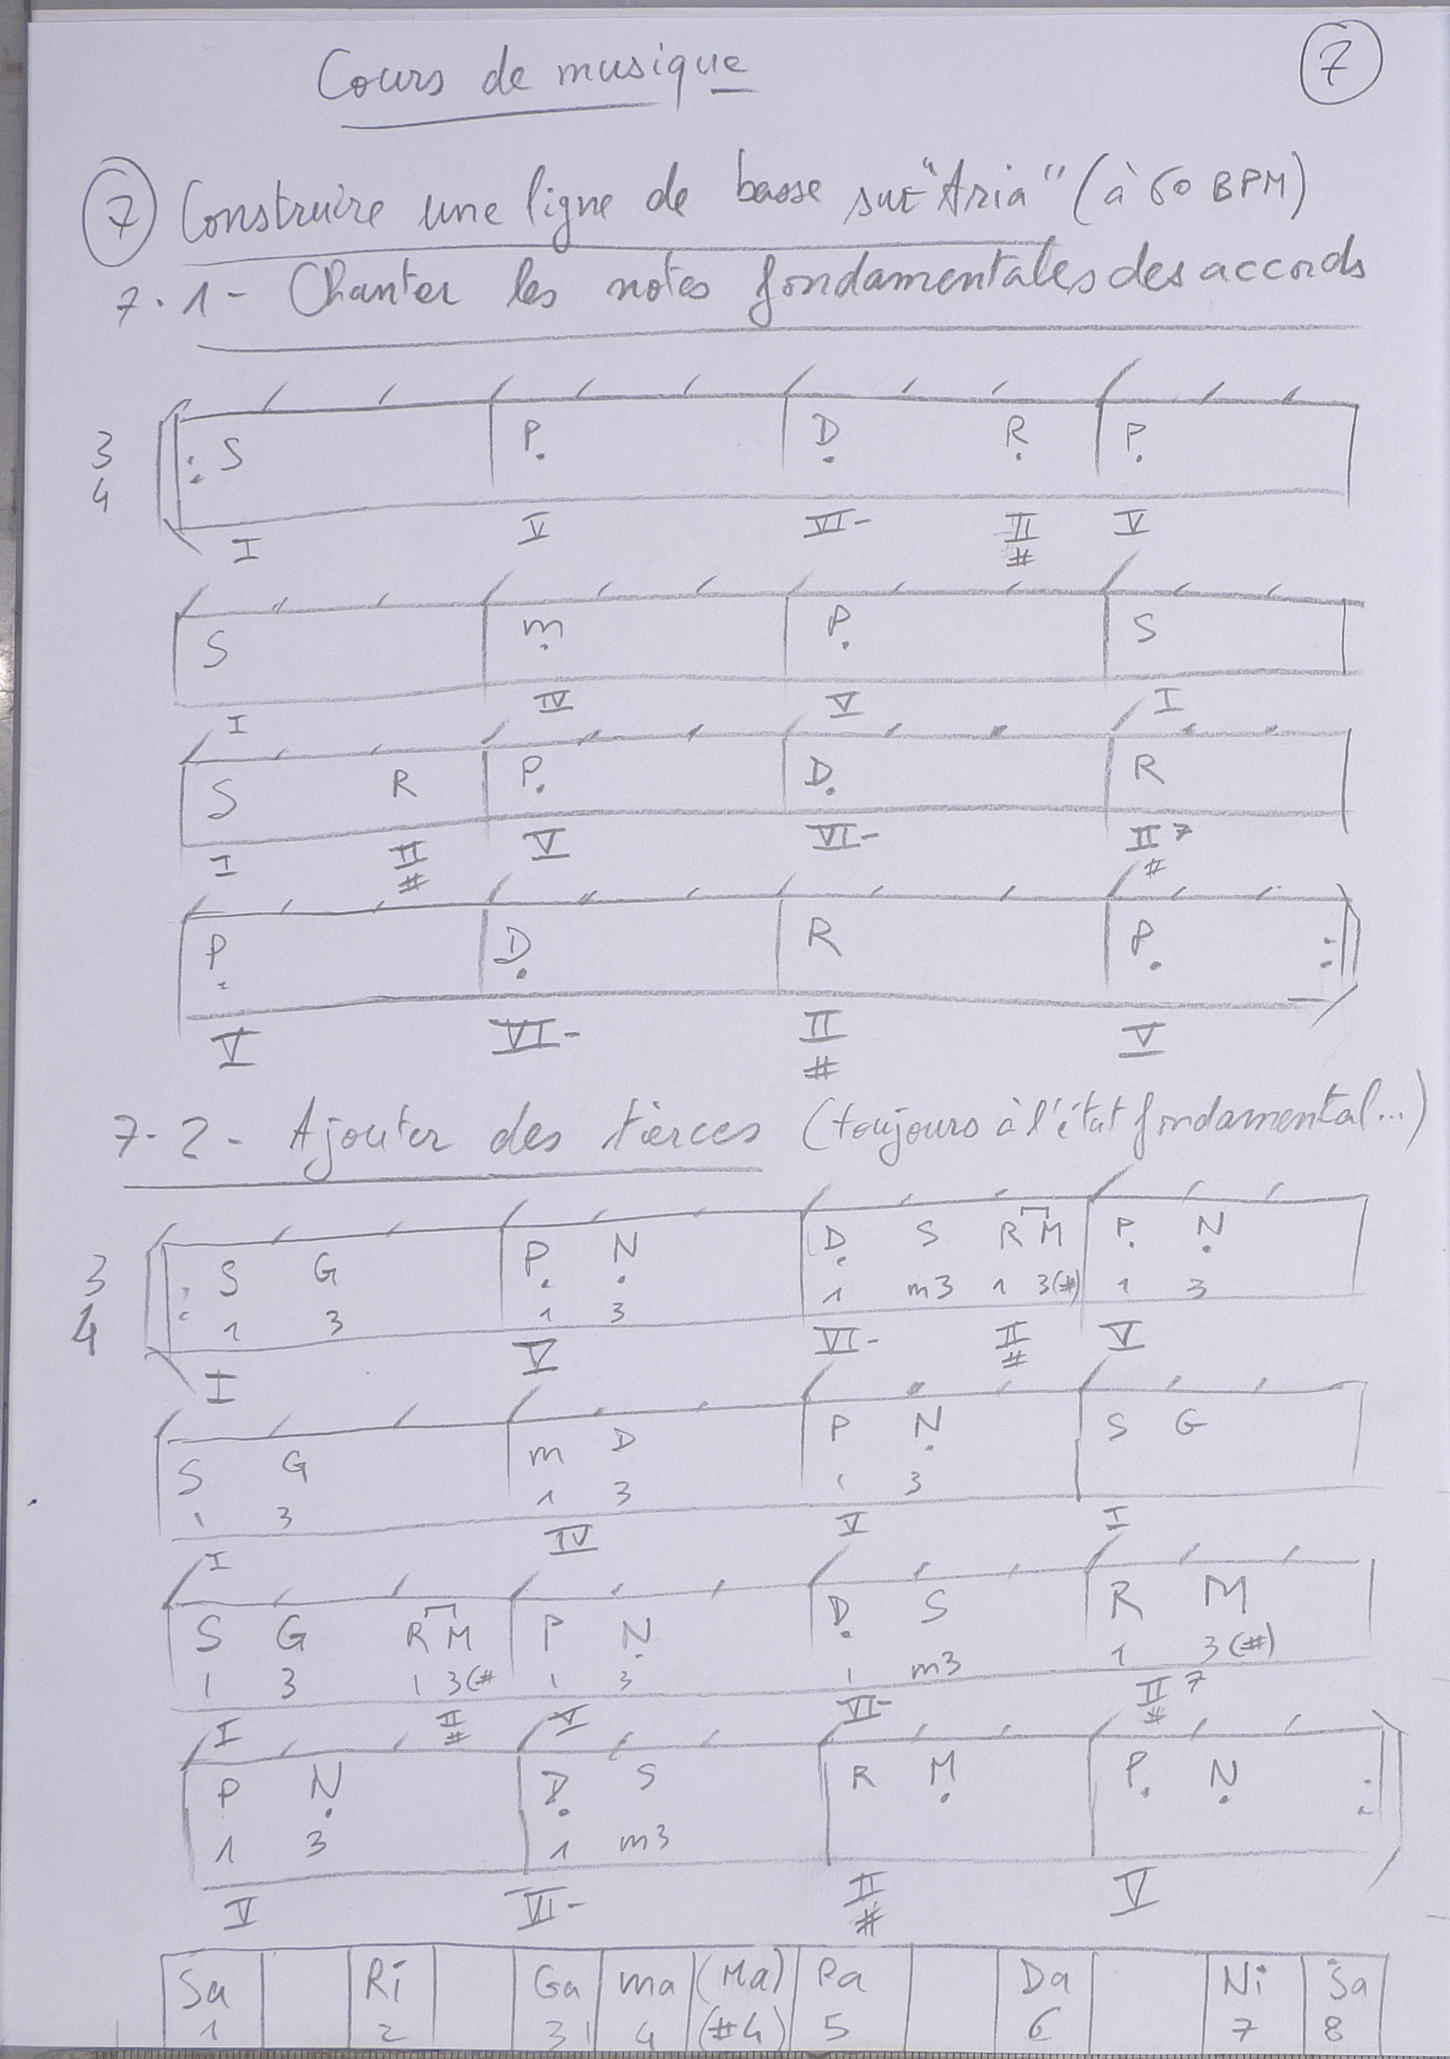 Cours de musique
7
7 Construire une ligne de basse sur "Aria" (à 60 BPM)
7.1- Chanter les notes fondamentales des accords
3 4
S P D R P
I V VI- II # V
S m P S
I IV V I
S R P D R
I II # V VI- II 7 #
P D R P
V VI- II # V
7-2- Ajouter des tierces (toujours à l'état fondamental...)
3 4
S G P N D S R M P N
1 3 1 3 1 m3 1 3(#) 1 3
I V VI- II # V
S G m D P N S G
1 3 1 3 1 3
I IV V I
S G R M P N D S R M
1 3 1 3(# 1 3 1 m3 1 3(#)
I II # V VI- II 7 #
P N D S R M P N
1 3 1 m3
V VI- II # V
Sa Ri Ga ma (Ma) Pa Da Ni Sa
1 2 3 4 (#4) 5 6 7 8